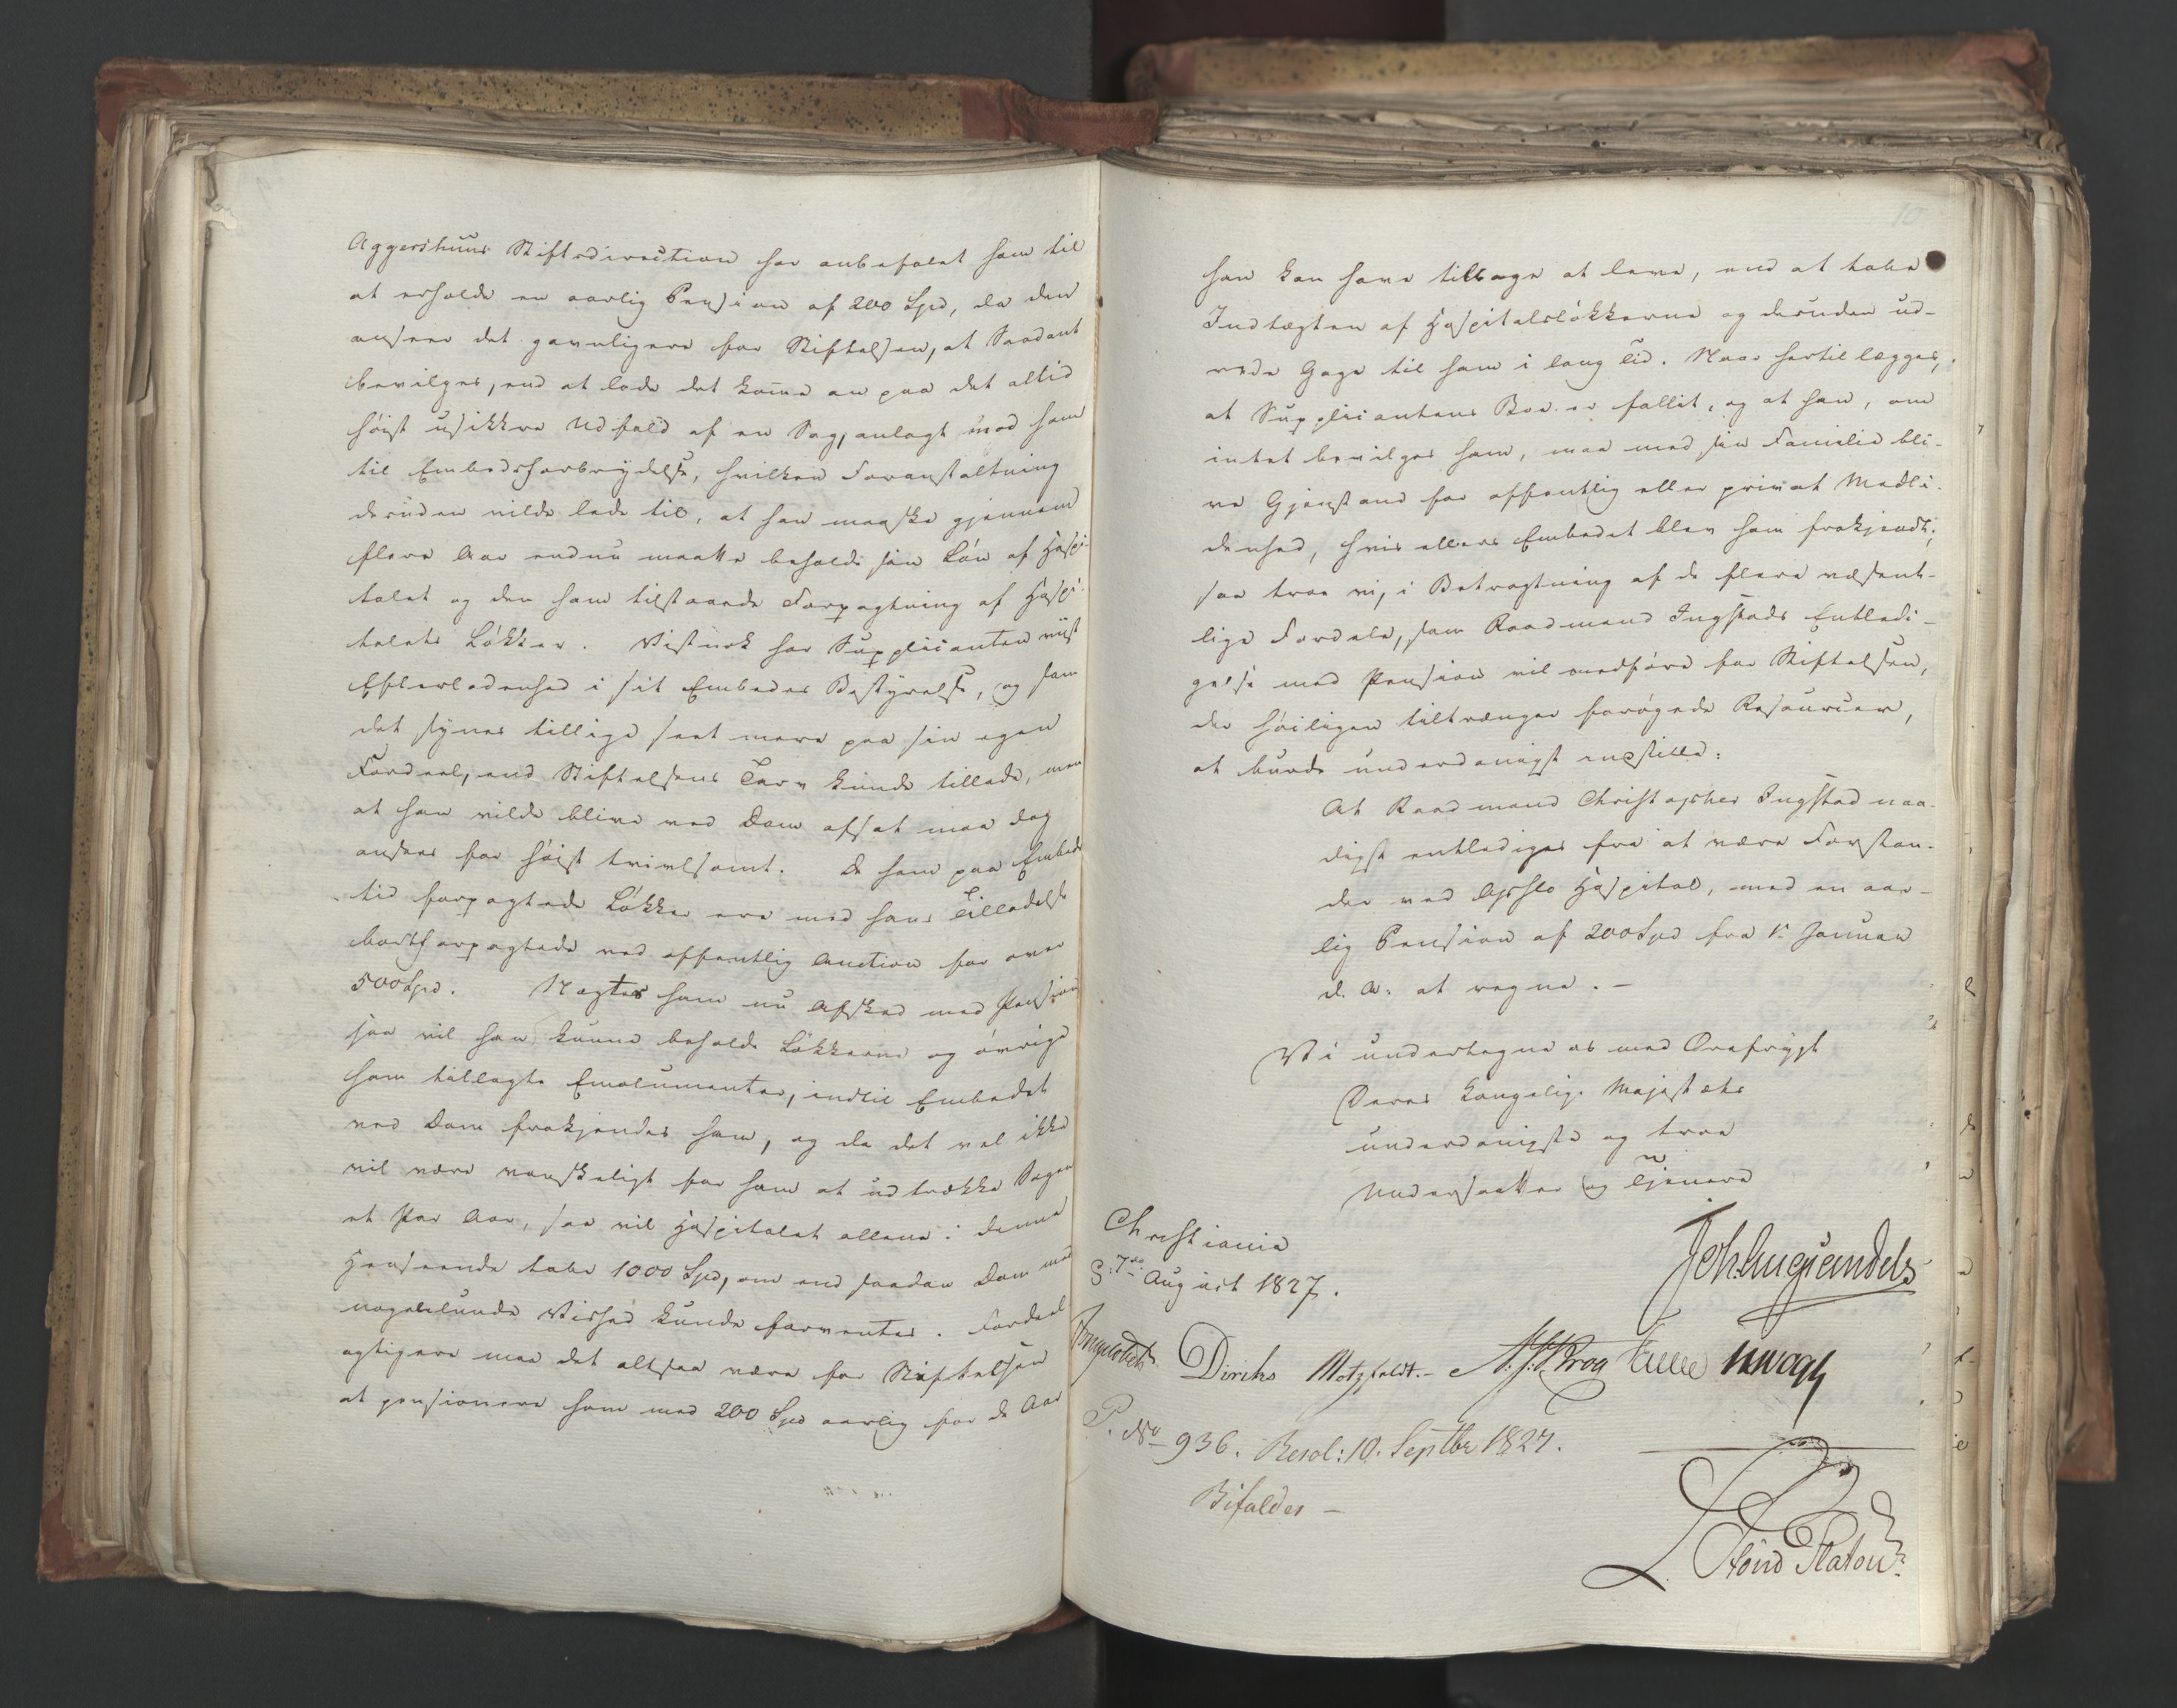 Aggershuus Stiftsdirection har anbefalet ham til
at erholde en aarlig Pension af 200 Spd, da den
anseer det gavnligere for Stiftelsen, at Saadant
bevilges, end at lade det komme an paa det altid
høist usikkre Udfald af en Sag, anlagt mod ham
til Embedsforbrydelse, hvilken Foranstaltning
desuden vilde lede til, at han maaske gjennem
flere Aar endnu maatte beholde sin Løn af Hospi-
talet og den ham tilstaaede Forpagtning af Hospi-
talets Løkker. Vistnok har Supplicanten viist
Efterladenhed i sit Embedes Bestyrelse, og som
det synes tillige seet mere paa sin egen
Fordeel, end Stiftelsens Tarv kunde tillade, men
at han vilde blive ved Dom afsat maa dog
ansees for høist tvivlsomt. De ham paa Embeds
tid forpagtede Løkker ere med hans Tilladelse
bortforpagtede ved offentlig Auction for over
500 Spd. Nægtes ham nu Afsked med Pension
saa vil han kunne beholde Løkkerne og øvrige
ham tillagte Emolumenter, indtil Embedet
ved Dom frakjendes ham, og da det vel ikke
vil være vanskeligt for ham at udtrække Sagen
et Par Aar, saa vil Hospitalet allene i denne
Henseende tabe 1000 Spd, om end saadan Dom med
nogenlunde Vished kunde forventes. Fordeel
agtigere maa det altsaa være for Stiftelsen
at pensionere ham med 200 Spd aarlig for de Aar
10
han kan have tilbage at leve, end at tabe
Indtægten af Hospitalsløkkerne og desuden ud-
rede Gage til ham i lang Tid. Naar hertil lægges,
at Supplicantens Boe er fallit, og at han, om
intet bevilges ham, maa med sin Familie bli-
ve Gjenstand for offentlig eller privat Medli-
denhed, hvis ellers Embedet blev ham frakjendt;
saa troe vi, i Betragtning af de flere væsent-
lige Fordele, som Raadmand Ingstads Entledi-
gelse med Pension vil medføre for Stiftelsen,
der høiligen tiltrænger forøgede Resourcer,
at burde underdanigst indstille:
At Raadmand Christopher Ingstad naa-
digst entlediges fra at være Forstan-
der ved Opslo Hospital, med en aar-
lig Pension af 200 Spd fra 1. Januar
d. A. at regne. -
Vi undertegne os med Ærefrygt
Deres Kongelige Majestæts
underdanigste og troe
Undersaatter og Tjenere
Christiania
August 1827.
Joh. Aug. Sandels
Diriks Motzfeldt.- Krog Vogt
P. No 936. Resol: 10. Septbr 1827.
Bifaldes -
L. Stoud Platou